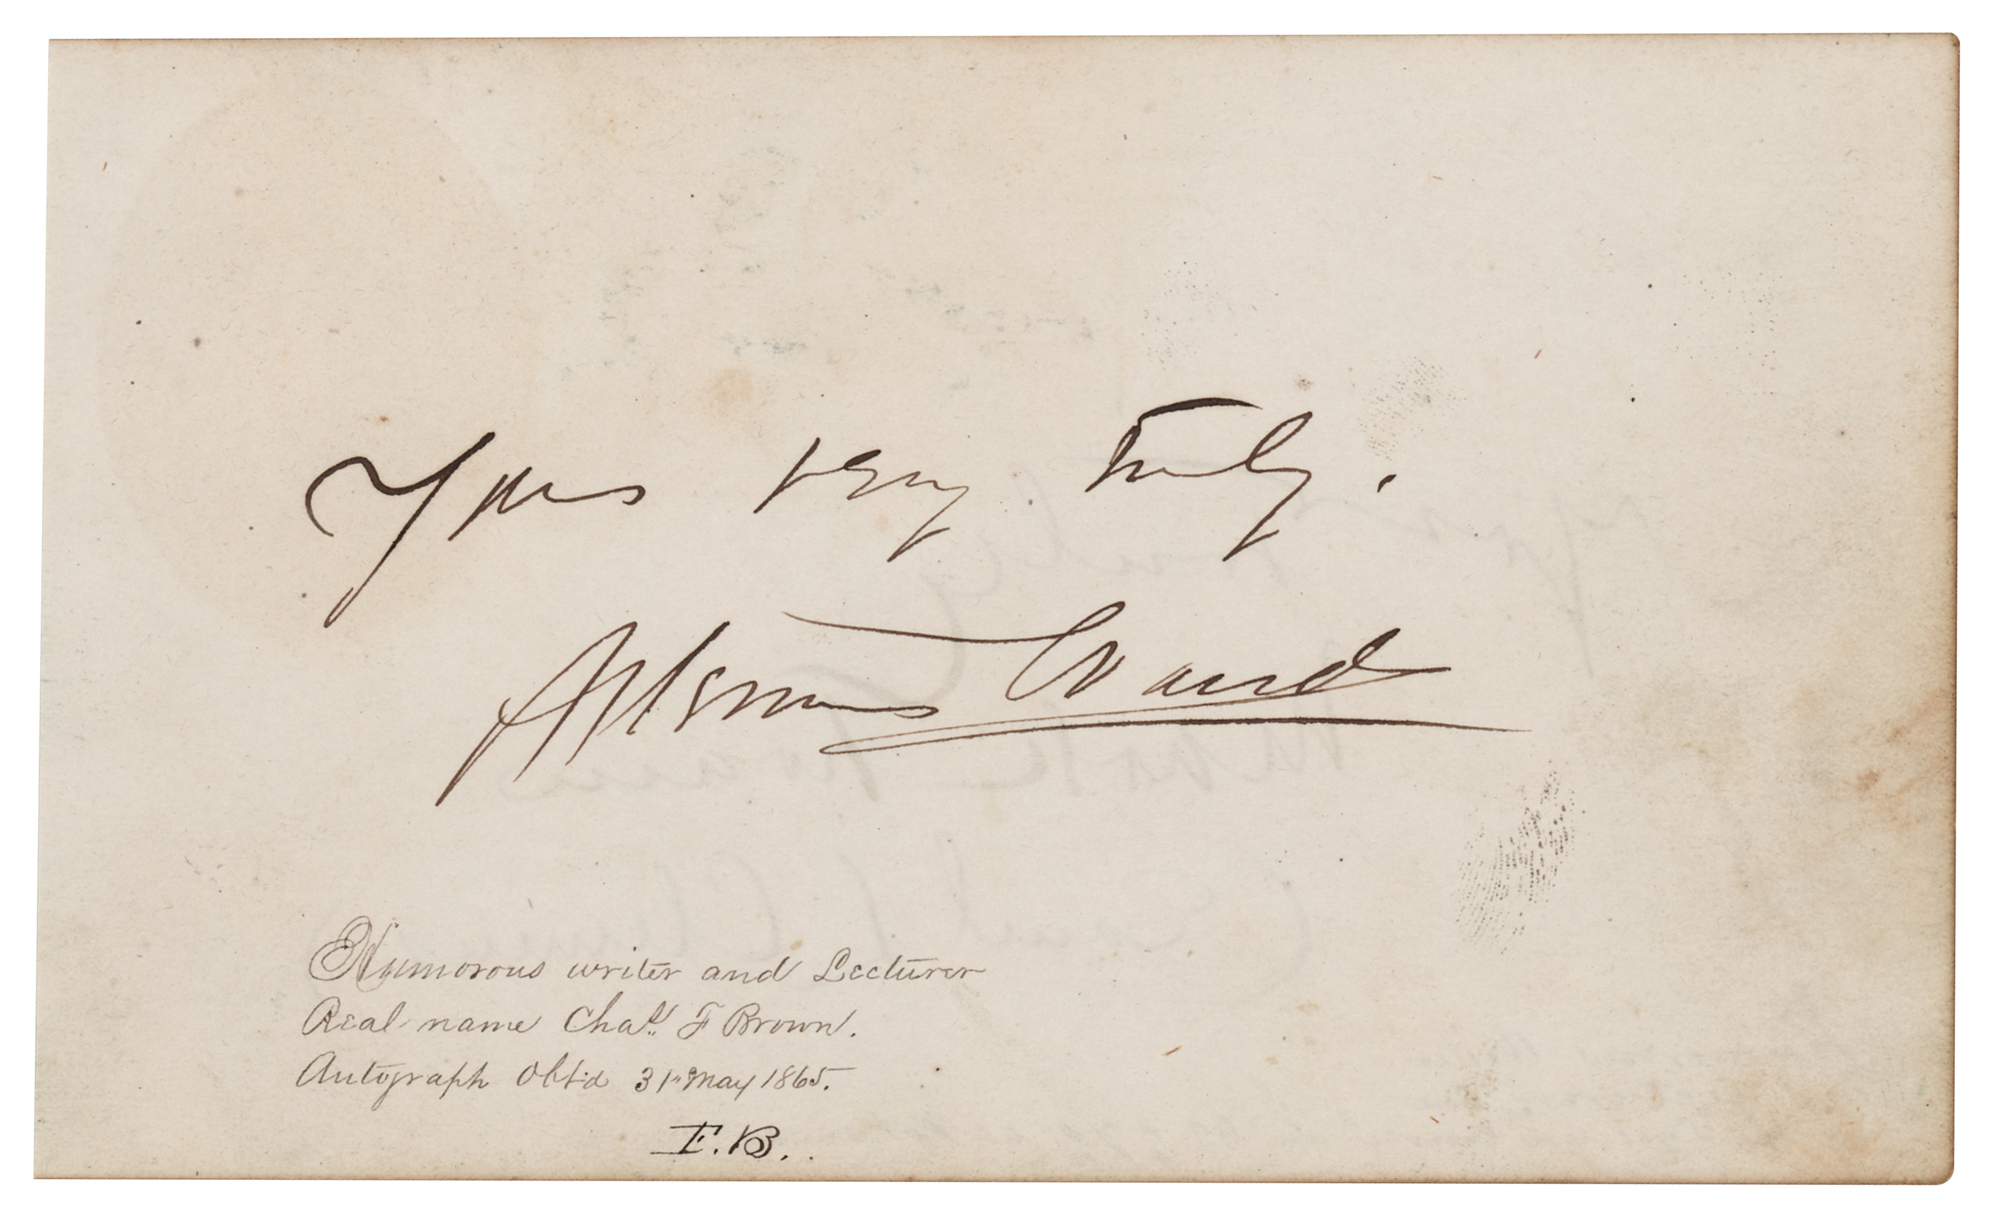 Yours very truly.
Artemus Ward
Humorous writer and Lecturer
Real name Chas. F Brown.
Autograph Obt'd 31st May 1865.
E.B.